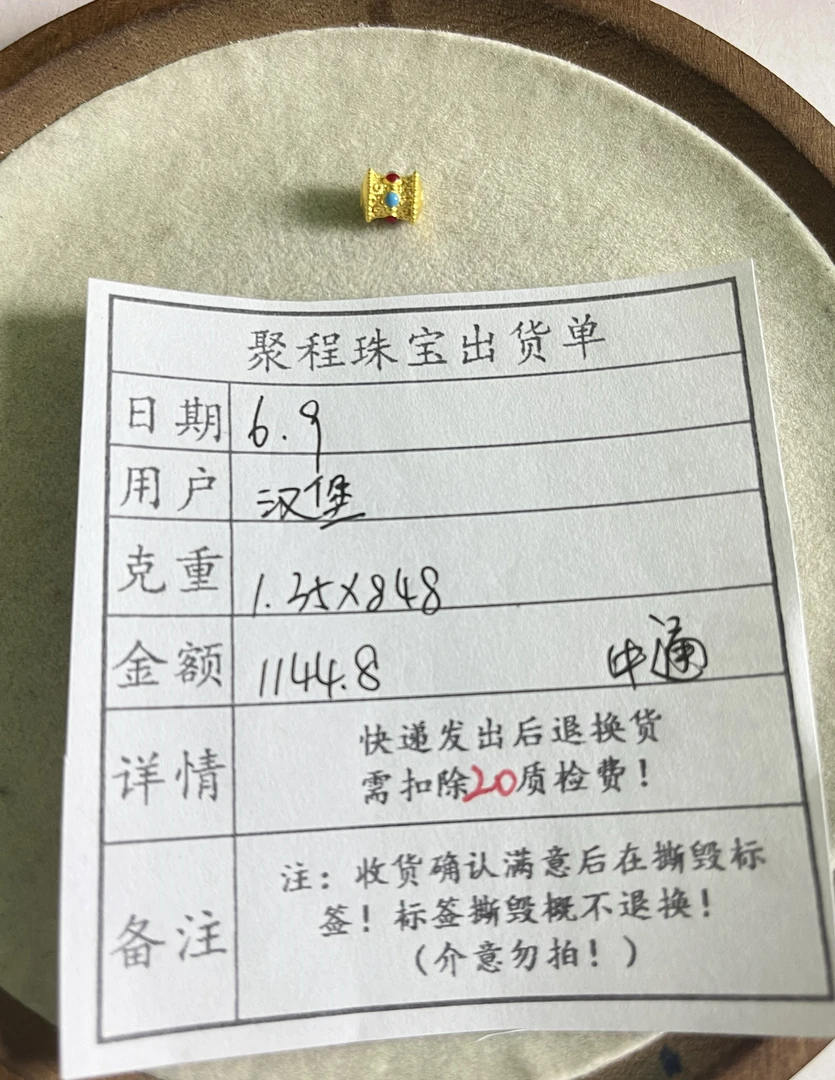 聚程珠宝出货单
日期 6.9
用户 汉堡
克重 1.35X848
金额 1144.8 中通
详情 快递发出后退换货
需扣除20质检费！
备注 注：收货确认满意后在撕毁标
签！标签撕毁概不退换！
（介意勿拍！）